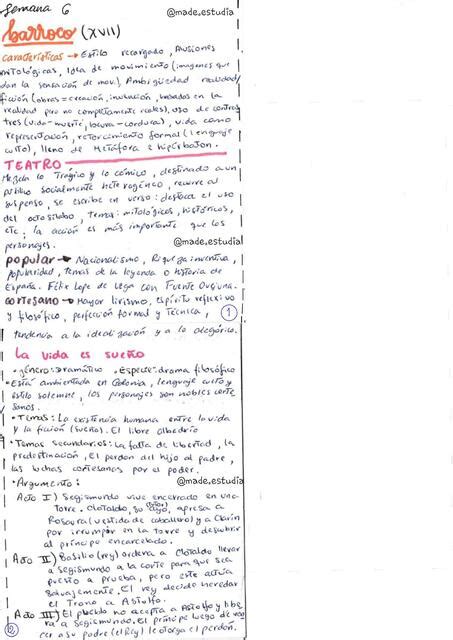 Semana 6
@made.estudia
barroco (XVII)
características → Estilo recargado, Alusiones
mitológicas, Idea de movimiento (imagenes que
dan la sensación de mov.), Ambigüedad realidad/
ficción (obras = creación, invitación, basados en la
realidad pero no completamente reales), uso de contras
tres (vida-muerte, locura-cordura), vida como
representación, retorcimiento formal (lenguaje
culto), lleno de Metáfora e hipérbaton.
TEATRO
Mezcla lo Trágico y lo cómico, destinado a un
público socialmente heterogéneo, recurre al
suspenso, se escribe en verso: destaca el uso
del octosílabo, temas: mitológicos, históricos,
etc; la acción es más importante que los
personajes.
@made.estudia
popular → Nacionalismo, Riqueza inventiva,
popularidad, temas de la leyenda o historia de
España. Félix Lope de Vega con Fuente Ovejuna.
cortesano → Mayor lirismo, espíritu reflexivo
y filosófico, perfección formal y Técnica,
1
tendencia a la idealización y a lo alegórico.
La vida es sueño
• género: Dramático • Especie: drama filosófico
• Está ambientada en Polonia, lenguaje culto y
estilo solemne, los personajes son nobles corte
sanos.
• Temas: La existencia humana entre la vida
y la ficción (sueño). El libre albedrío
• Temas secundarios: La falta de libertad, la
predestinación, El perdón del hijo al padre,
las luchas cortesanas por el poder.
• Argumento:
@made.estudia
Acto I) Segismundo vive encerrado en una
Torre. Clotaldo, su ayo, apresa a
Rosaura (vestida de caballero) y a Clarín
por irrumpir en la torre y descubrir
al príncipe encarcelado.
Acto II) Basilio (rey) ordena a Clotaldo llevar
a Segismundo a la corte para que sea
puesto a prueba, pero este actúa
salvajemente. El rey decide heredar
el Trono a Astolfo.
Acto III) El pueblo no acepta a Astolfo y libe
ra a Segismundo. El príncipe luego de ven
cer a su padre (el Rey) le otorga el perdón.
2